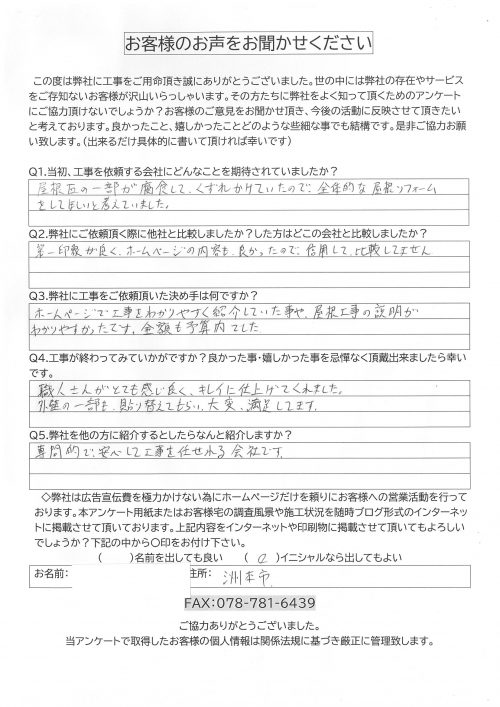 お客様のお声をお聞かせください
この度は弊社に工事をご用命頂き誠にありがとうございました。世の中には弊社の存在やサービス
をご存知ないお客様が沢山いらっしゃいます。その方たちに弊社をよく知って頂くためのアンケート
にご協力頂けないでしょうか？お客様のご意見をお聞かせ頂き、今後の活動に反映させて頂きたい
と考えております。良かったこと、嬉しかったことどのような些細な事でも結構です。是非ご協力お願
い致します。（出来るだけ具体的に書いて頂ければ幸いです）
Q1.当初、工事を依頼する会社にどんなことを期待されていましたか？
屋根瓦の一部が腐食して、くずれかけていたので、全体的な屋根リフォーム
をしてほしいと考えていました。
Q2.弊社にご依頼頂く際に他社と比較しましたか？した方はどこの会社と比較しましたか？
第一印象が良く、ホームページの内容も、良かったので、信用して、比較してません
Q3.弊社に工事をご依頼頂いた決め手は何ですか？
ホームページで工事をわかりやすく紹介していた事や、屋根工事の説明が
わかりやすかったです。金額も予算内でした
Q4.工事が終わってみていかがですか？良かった事・嬉しかった事を忌憚なく頂戴出来ましたら幸い
です。
職人さんがとても感じ良く、キレイに仕上げてくれました。
外壁の一部も、貼り替えてもらい、大変、満足してます。
Q5.弊社を他の方に紹介するとしたらなんと紹介しますか？
専門的で、安心して工事を任せれる会社です。
◇弊社は広告宣伝費を極力かけない為にホームページだけを頼りにお客様への営業活動を行って
おります。本アンケート用紙またはお客様宅の調査風景や施工状況を随時ブログ形式のインターネッ
トに掲載させて頂いております。上記内容をインターネットや印刷物に掲載させて頂いてもよろしい
でしょうか？下記の中から〇印をお付け下さい。
（　　）名前を出しても良い　（〇）イニシャルなら出してもよい
お名前：　住所：　洲本市
FAX：078-781-6439
ご協力ありがとうございました。
当アンケートで取得したお客様の個人情報は関係法規に基づき厳正に管理致します。